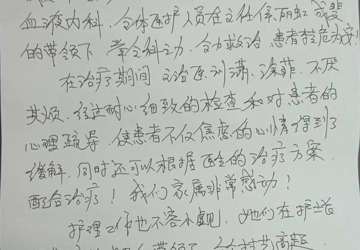 血液内科，全体医护人员在主任保丽虹
的带领下，举全科之力，全力救治，患者转危为安！
在治疗期间，主治医刘潇、涂菲，不厌
其烦，经过耐心细致的检查和对患者的
心理疏导，使患者不仅焦虑的心情得到了
缓解，同时还可以根据医生的治疗方案
配合治疗！我们家属非常感动！
护理工作也不容小觑，她们在护士长
带领下